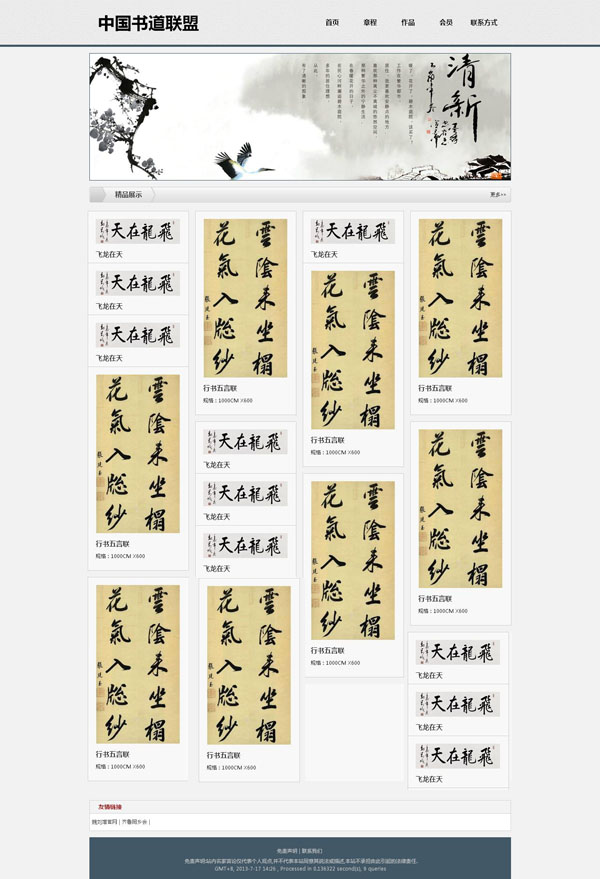 中国书道联盟
首页 章程 作品 会员 联系方式
清新
精品展示
更多>>
飛龍在天
飞龙在天
飛龍在天
飞龙在天
飛龍在天
飞龙在天
雲陰来坐榻
花氣入窓紗
行书五言联
规格：1000CM X600
雲陰来坐榻
花氣入窓紗
行书五言联
规格：1000CM X600
雲陰来坐榻
花氣入窓紗
行书五言联
规格：1000CM X600
飛龍在天
飞龙在天
飛龍在天
飞龙在天
飛龍在天
飞龙在天
雲陰来坐榻
花氣入窓紗
行书五言联
规格：1000CM X600
飛龍在天
飞龙在天
雲陰来坐榻
花氣入窓紗
行书五言联
规格：1000CM X600
雲陰来坐榻
花氣入窓紗
行书五言联
规格：1000CM X600
雲陰来坐榻
花氣入窓紗
行书五言联
规格：1000CM X600
雲陰来坐榻
花氣入窓紗
行书五言联
规格：1000CM X600
飛龍在天
飞龙在天
飛龍在天
飞龙在天
飛龍在天
飞龙在天
友情链接
免责声明 | 联系我们
免责声明:站内名家言论仅代表个人观点,并不代表本站同意其说法或描述,本站不承担由此引起的法律责任.
GMT+8, 2013-7-17 14:26 , Processed in 0.136322 second(s), 9 queries